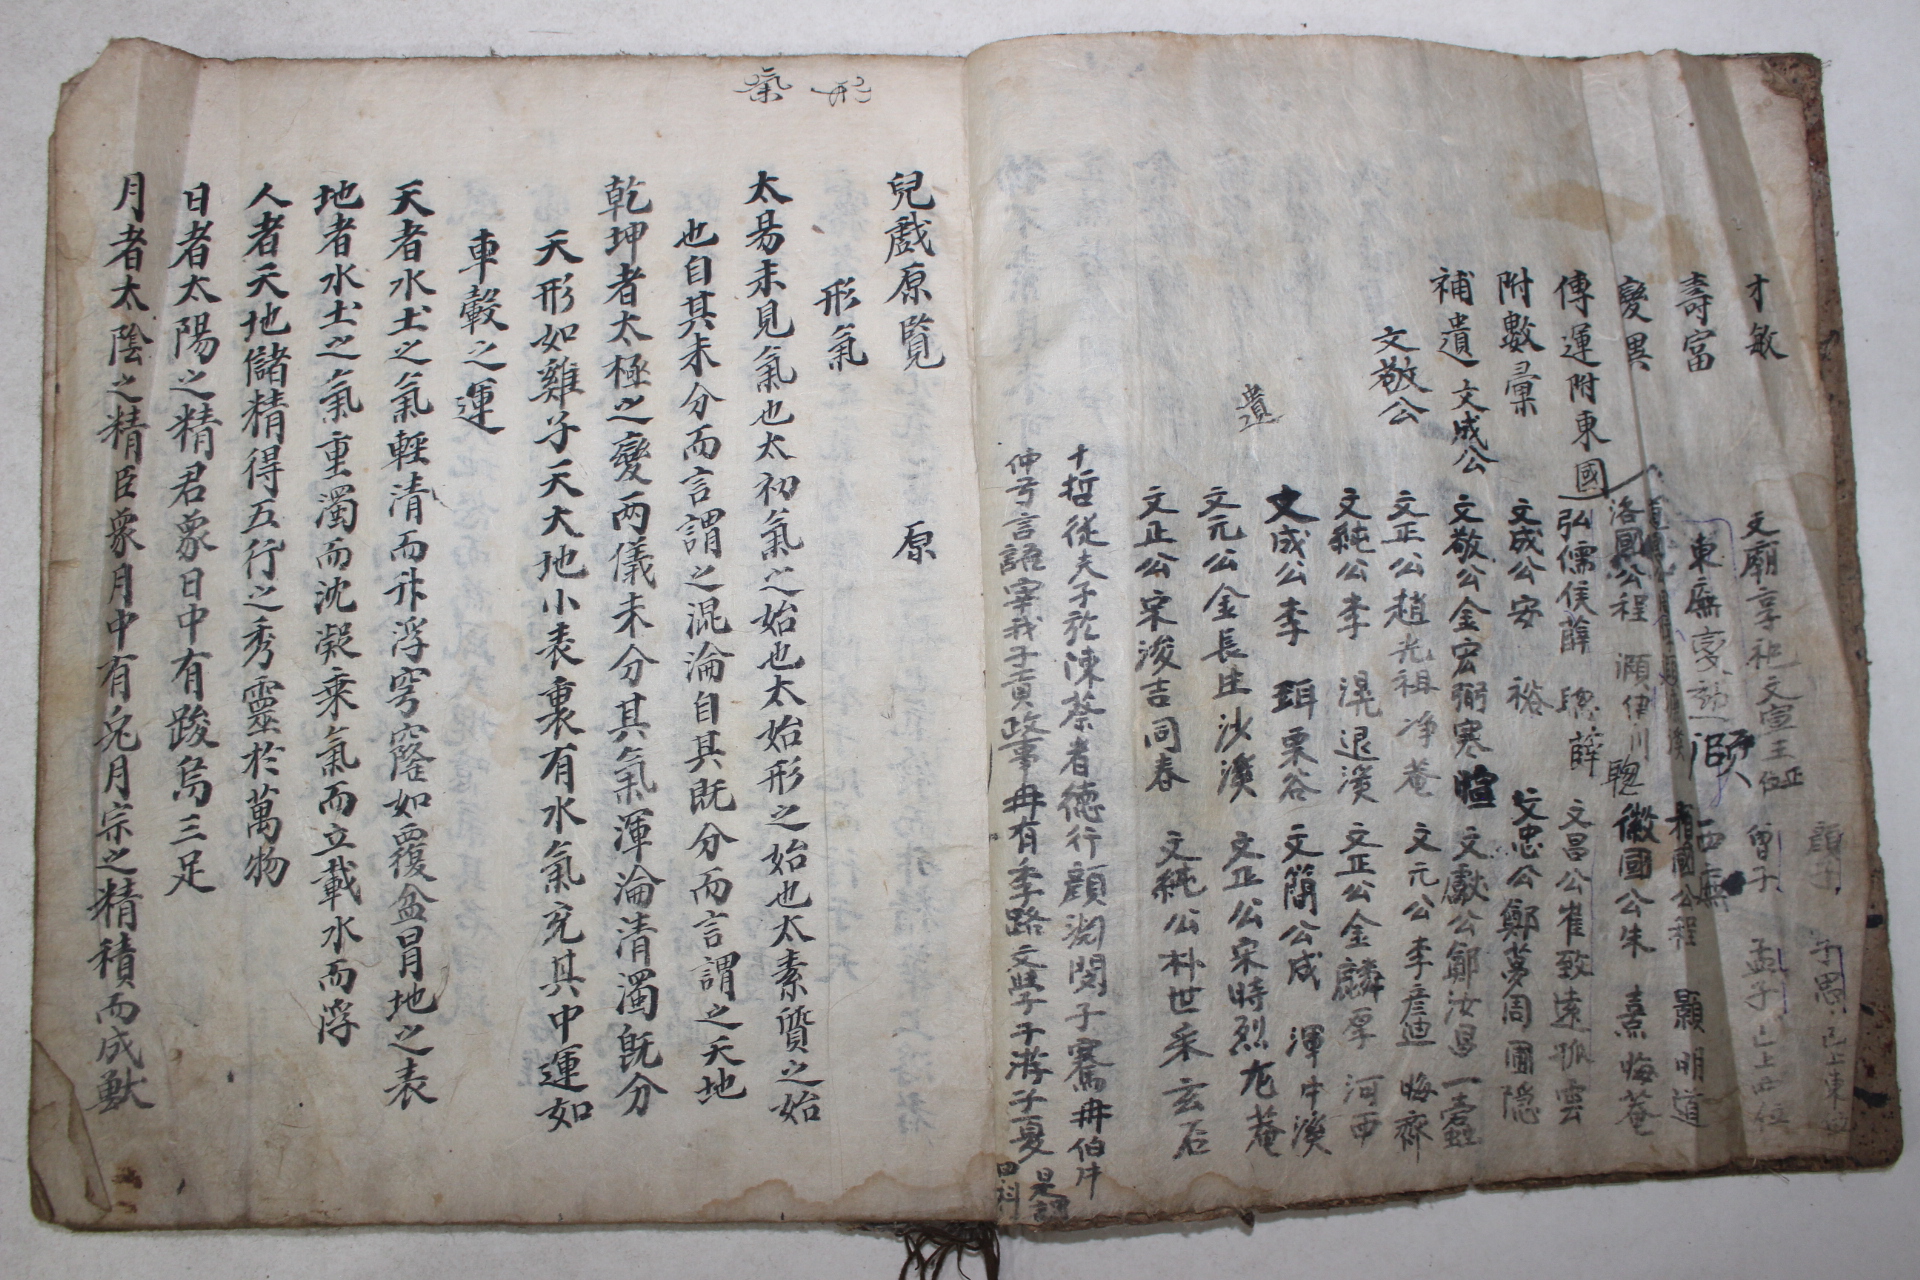 才敏
壽富
變異
傳運附東國
附數彙
補遺
文廟享祀文宣王
正位
顔子
子思
曾子
孟子
已上四位
東廡
西廡
洛國公程
顥
明道
伊川
徽國公朱
熹
晦菴
弘儒侯薛
聰
薛聰
文昌公崔致遠孤雲
文成公安
裕
文忠公鄭夢周圃隱
文成公
文敬公金宏弼寒暄
文獻公鄭汝昌一蠹
文敬公
文正公趙光祖净菴
文元公李彦迪
晦齋
文純公李
滉退溪
文正公金麟厚
河西
遺
文成公李
珥栗谷
文簡公成
渾牛溪
文元公金長生沙溪
文正公宋時烈尤菴
文正公宋浚吉同春
文純公朴世采玄石
十哲從夫子於陳蔡者德行顔淵閔子騫冉伯牛
仲弓言語宰我子貢政事冉有季路文學子游子夏
是謂四科
形
氣
兒戱原覧
原
形氣
太易未見氣也太初氣之始也太始形之始也太素質之始
也自其未分而言謂之混淪自其既分而言謂之天地
乾坤者太極之變两儀未分其氣渾淪清濁既分
天形如雞子天大地小表裏有水氣充其中運如
車轂之運
天者水土之氣輕清而升浮穹窿如覆盆冒地之表
地者水土之氣重濁而沈凝乘氣而立載水而浮
人者天地儲精得五行之秀靈於萬物
日者太陽之精君象日中有踆烏三足
月者太陰之精臣象月中有兎月宗之精積而成獸